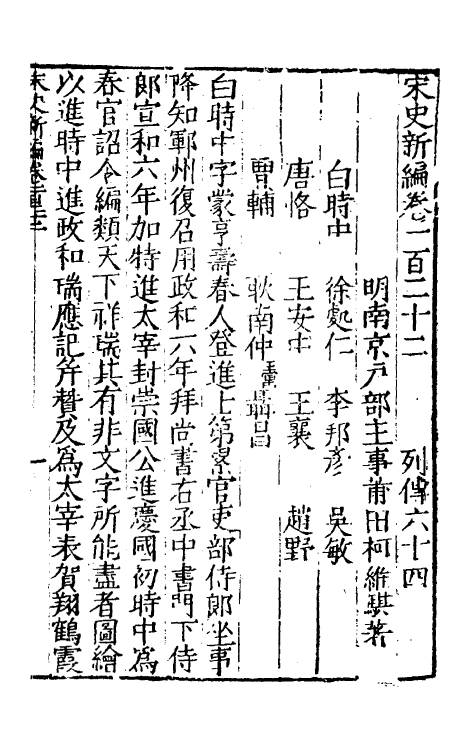 宋史新編卷一百二十二 列傳六十四
明南京戶部主事莆田柯維騏著
白時中 徐處仁 李邦彥 吳敏
唐恪 王安中 王襄 趙野
曹輔 耿南仲 聶昌
白時中字蒙亨壽春人登進士第累官吏部侍郎坐事
降知鄆州復召用政和六年拜尚書右丞中書門下侍
郎宣和六年加特進太宰封崇國公進慶國初時中為
春官詔令編類天下祥瑞其有非文字所能盡者圖繪
以進時中進政和瑞應記并贊及為太宰表賀翔鶴霞
宋史新編卷 一